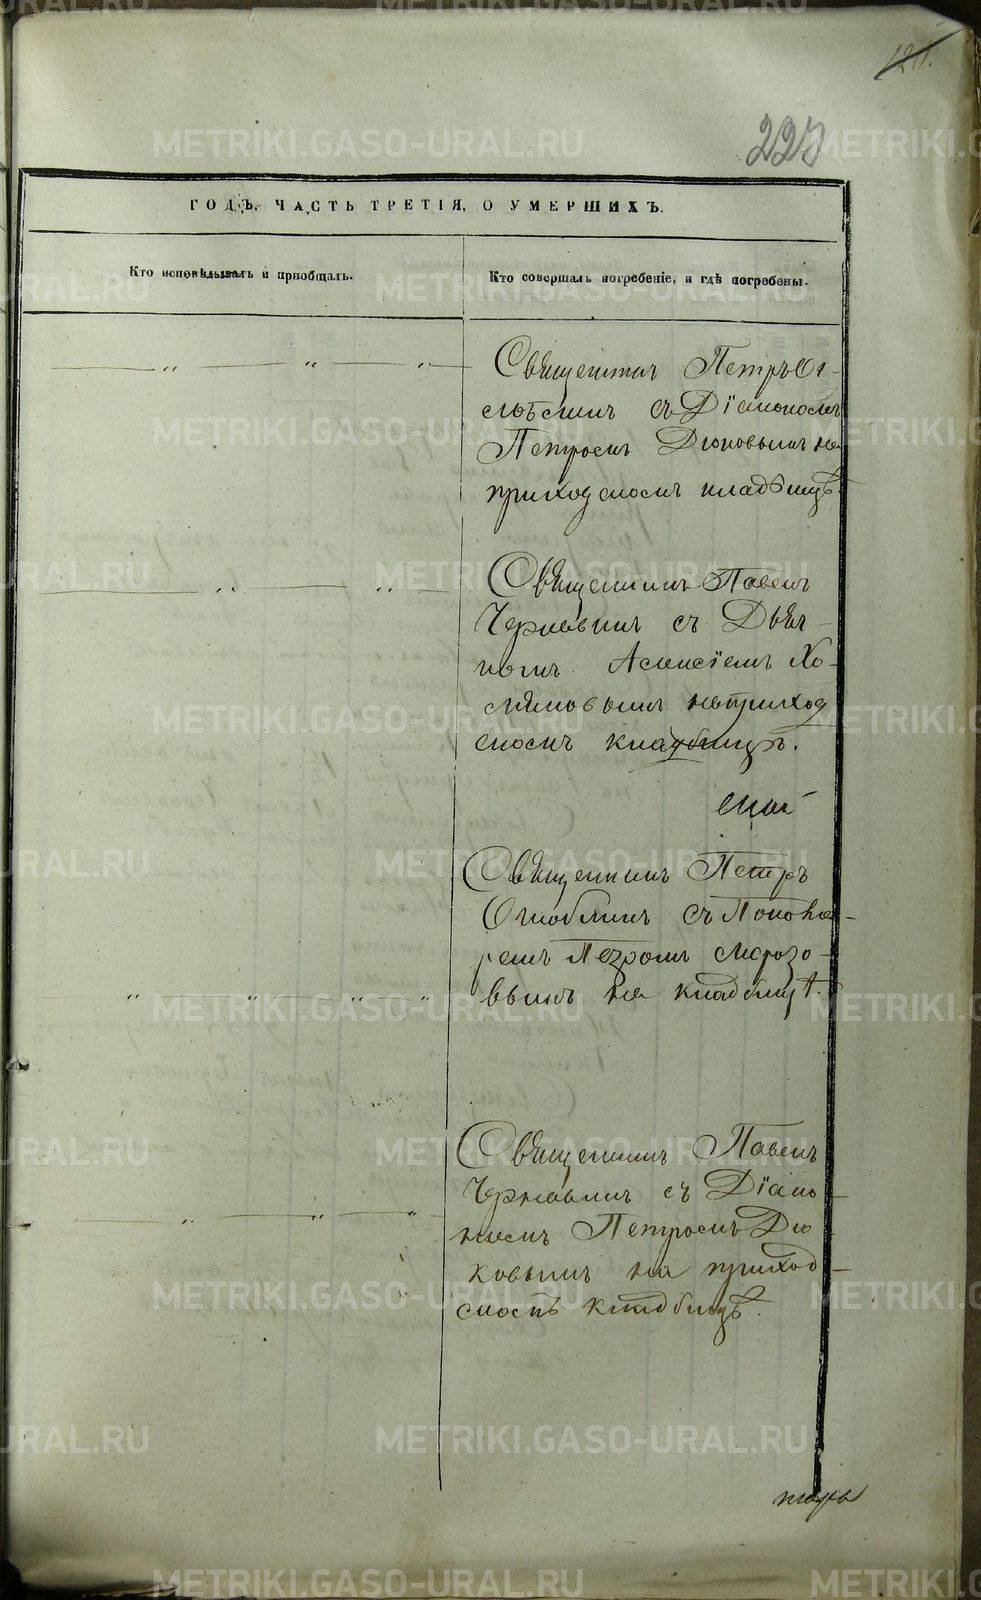 121.
227
ГОДЪ, ЧАСТЬ ТРЕТІЯ, О УМЕРШИХЪ.
Кто исповѣдывалъ и пріобщалъ.
Кто совершалъ погребеніе, и гдѣ погребены.
Священникъ Петръ
съ Діакономъ
Петромъ Дюковымъ на
приходскомъ кладбищѣ.
Священникъ Павелъ
Чернавинъ съ Дьяч-
комъ Алексіемъ Хо-
мяковымъ на приход
скомъ кладбищѣ.
Священникъ Петръ
съ Понома-
ремъ Петромъ Морозо-
вымъ на кладбищѣ.
Священникъ Павелъ
Чернавинъ съ Діако-
номъ Петромъ Дю
ковымъ на приход-
скомъ кладбищѣ.
METRIKI.GASO-URAL.RU